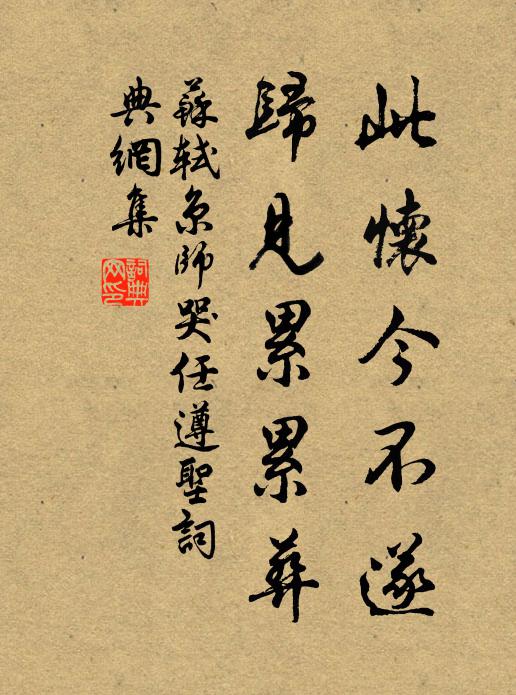 此懷今不遂
歸見累累葬
蘇軾京師哭任遵聖詞
典網集
詞典
网印